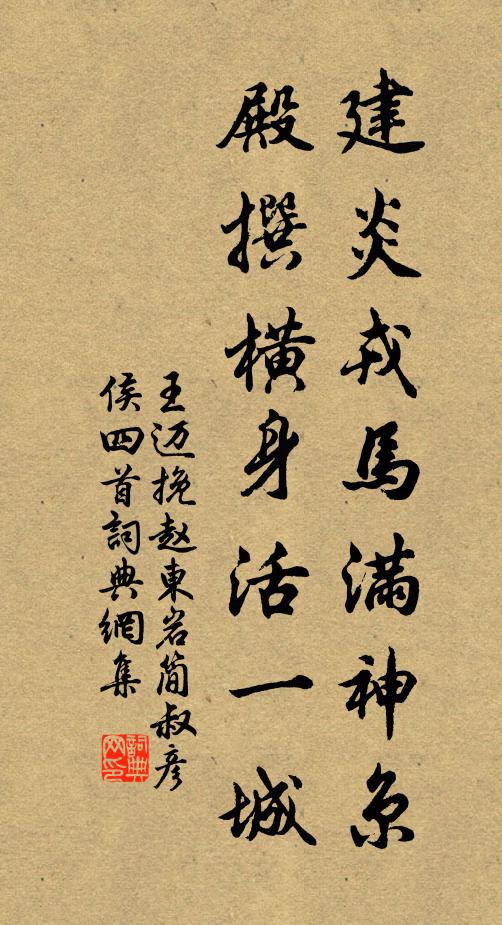 建炎戎馬滿神京
殿撰橫身活一城
王迈挽赵東岩簡叔彦
侯四首詞典網集
詞典网印